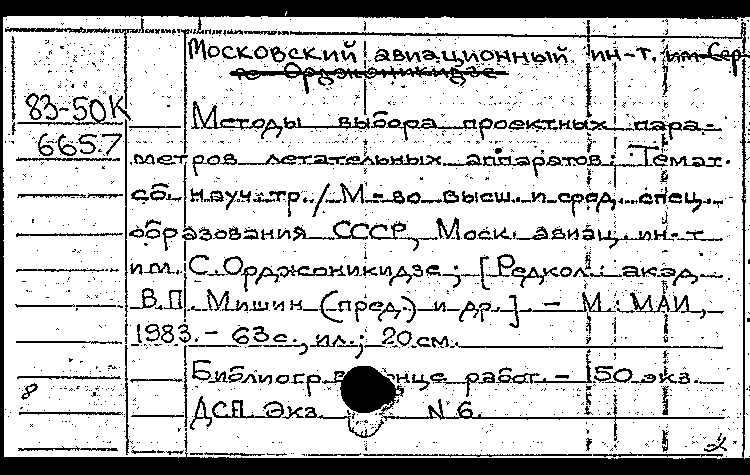 Московский авиационный ин-т. им. Сер-
го Орджоникидзе
83-50К
6657
Методы выбора проектных пара-
метров летательных аппаратов: Темат.
сб. науч. тр. / М-во высш. и сред. спец.
образования СССР, Моск. авиац. ин-т
им. С. Орджоникидзе; [Редкол.: акад.
В.П. Мишин (пред.) и др.]. - М.: МАИ,
1983. - 63 с., ил.; 20 см.
Библиогр. в конце работ. - 150 экз.
ДСП. Экз. N 6.
8